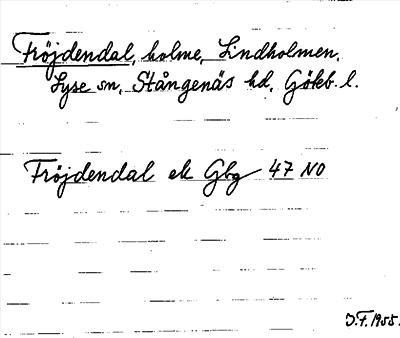 Fröjdendal, holme, Lindholmen,
Lyse sn, Stångenäs hd, Götb. l.
Fröjdendal ek Gbg 47 NO
J.F. 1955.